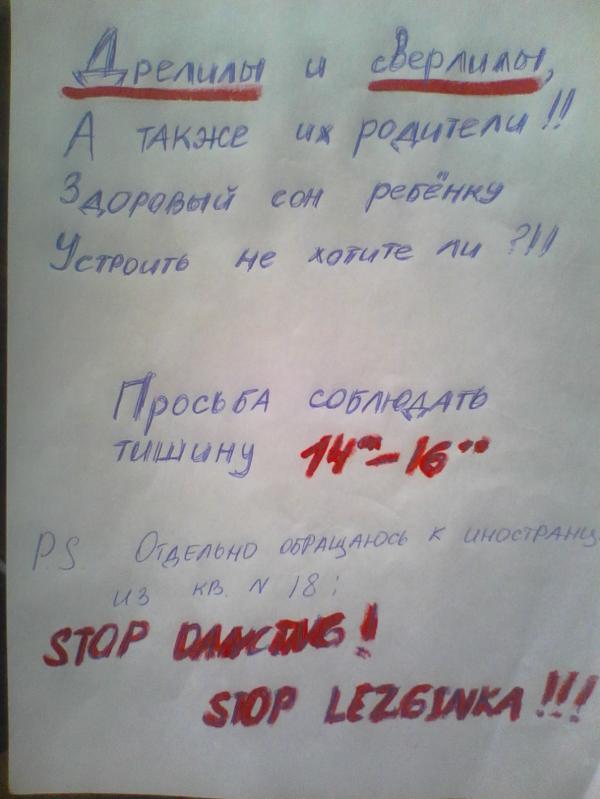 Дрелилы и сверлилы,
А также их родители!!
Здоровый сон ребёнку
Устроить не хотите ли?!!!
Просьба соблюдать
тишину 14°°-16°°
PS Отдельно обращаюсь к иностранц
из кв. N 18:
STOP DANCING!
STOP LEZGINKA!!!